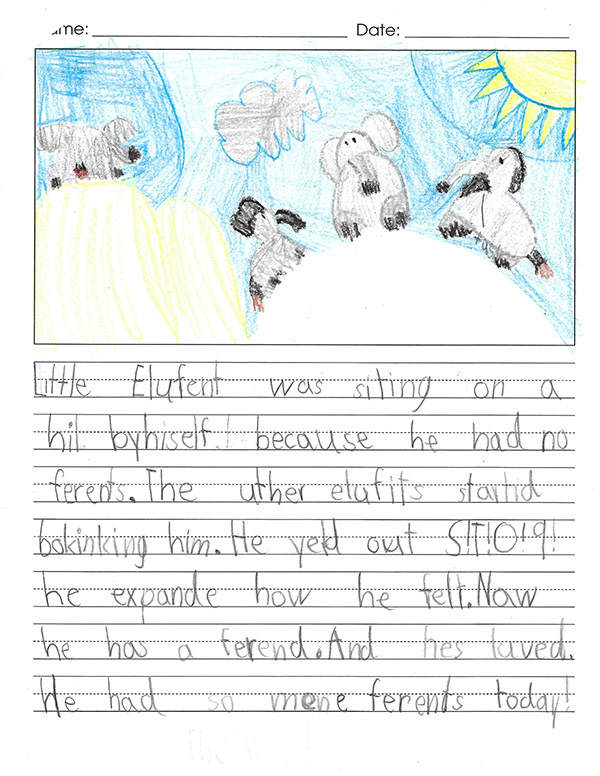 ame: Date:
Little Elufent was siting on a
hil byhiself. because he had no
ferents. The uther elufits startid
bokinking him. He yeld out S!T!O!9!
he expande how he felt. Now
he has a ferend. And hes laved.
He had so mene ferents today!